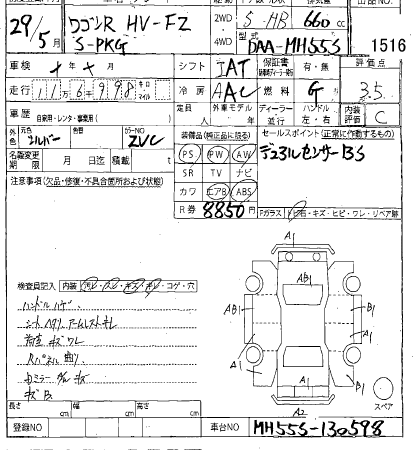 29/5月 ワゴンR HV-FZ 2WD S-HB 660cc
S-PKG 4WD 型式 DAA-MH55S 1516
車検 シフト IAT 有・無 評価点
走行 116998 キロ マイル 冷房 AAC 燃料 G 3.5
車歴 自家用・レンタ・事業用( ) 定員 人 外車モデル ディーラー 並行 ハンドル 左・右 内装評価 C
外色 元色 シルバー 色替 カラーNO ZVC 装備品(純正品に限る) セールスポイント(正常に作動するもの)
名義変更期限 月 日迄 積載 t PS PW AW デュアルセンサーBS
注意事項(欠品・修復・不具合箇所および状態) SR TV ナビ
カワ エアB ABS
R券 8850円 Fガラス トビ石・キズ・ヒビ・ワレ・リペア跡
A1
検査員記入 内装 汚レ・スレ・キズ・キレ・コゲ・穴
AB1 AB1 B1
ハンドルハゲ
シートヘタリ アームレストキレ A1
荷室 キズ ワレ
Rパネル 曲り A1 B1
A1
キズ B
長さ cm 幅 cm 高さ cm A2 スペア
登録NO 車台NO MH55S-130598